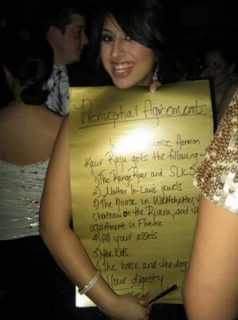 Prenuptial Agreement
Kaur Raju gets the following
1) The Range Rover and SLK
2) Mother In-Laws jewels
3) The House in
chateau on the Riviera, and
apartment in Florence
4) All your assets
5) the kids
6) The horse and the dog
7) Your dignity